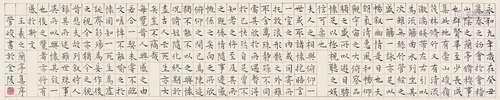 永和九年歲在癸丑暮春
之初會于會稽山陰之蘭
亭修禊事也群賢畢至少
長咸集此地有崇山峻領
茂林修竹又有清流激湍
映帶左右引以為流觴曲
水列坐其次雖無絲竹管
弦之盛一觴一詠亦足以
暢敘幽情是日也天朗氣
清惠風和暢仰觀宇宙之
大俯察品類之盛所以遊
目騁懷足以極視聽之娛
信可樂也夫人之相與俯
仰一世或取諸懷抱悟言
一室之內或因寄所託放
浪形骸之外雖趣舍萬殊
靜躁不同當其欣於所遇
暫得於己快然自足不知
老之將至及其所之既倦
情隨事遷感慨係之矣向
之所欣俛仰之間以為陳
迹猶不能不以之興懷況
修短隨化終期於盡古人
云死生亦大矣豈不痛哉
每覽昔人興感之由若合
一契未嘗不臨文嗟悼不
能喻之於懷固知一死生
為虛誕齊彭殤為妄作後
之視今亦由今之視昔悲
夫故列敘時人錄其所述
雖世殊事異所以興懷其
致一也後之覽者亦將有
感於斯文
王羲之蘭亭集序
管峻書於金陵